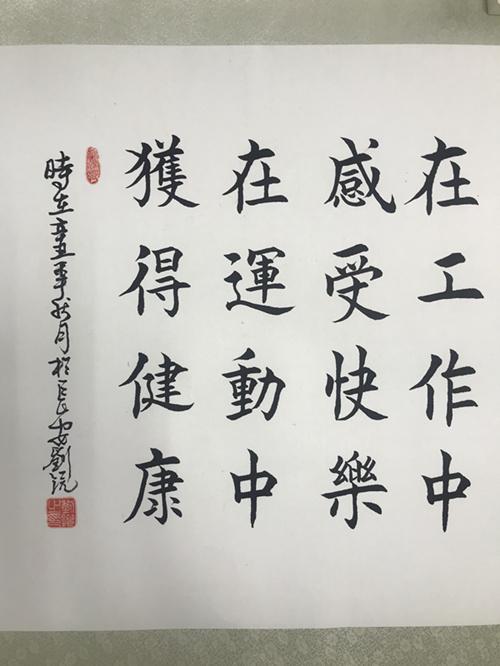 在工作中
感受快樂
在運動中
獲得健康
時在辛丑年秋月於長安劉